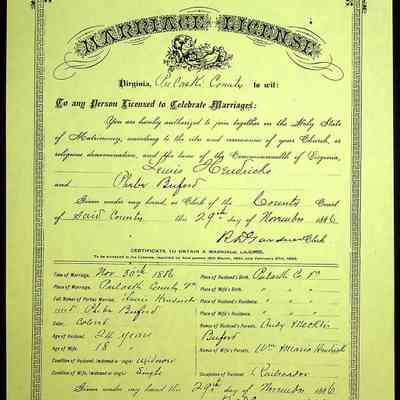 MARRIAGE LICENSE
Virginia, Pulaski County to wit:
To any Person Licensed to Celebrate Marriages:
You are hereby authorized to join together in the Holy State
of Matrimony, according to the rites and ceremonies of your Church, or
religious denomination, and the laws of the Commonwealth of Virginia,
Lewis Hendricks
and Phebe Buford
Given under my hand, as Clerk of the County Court
of Said County this 29th day of November 1886
Clerk
CERTIFICATE TO OBTAIN A MARRIAGE LICENSE.
To be annexed to the License, required by Acts passed 15th March, 1861, and February 27th, 1866.
Time of Marriage, Nov. 30th 1886
Place of Marriage, Pulaski County Va
Full Names of Parties Married, Lewis Hendricks
and Phebe Buford
Color, Colored
Age of Husband, 24 years
Age of Wife, 18 "
Condition of Husband (widowed or single) Widower
Condition of Wife, (widowed or single) Single
Place of Husband's Birth, Pulaski Co Va
Place of Wife's Birth, " " "
Place of Husband's Residence, " " "
Place of Wife's Residence, " " "
Names of Husband's Parents, Andy
Buford
Names of Wife's Parents, Wm Maria Hendricks
Occupation of Husband,
Given under my hand this 29th day of November 1886